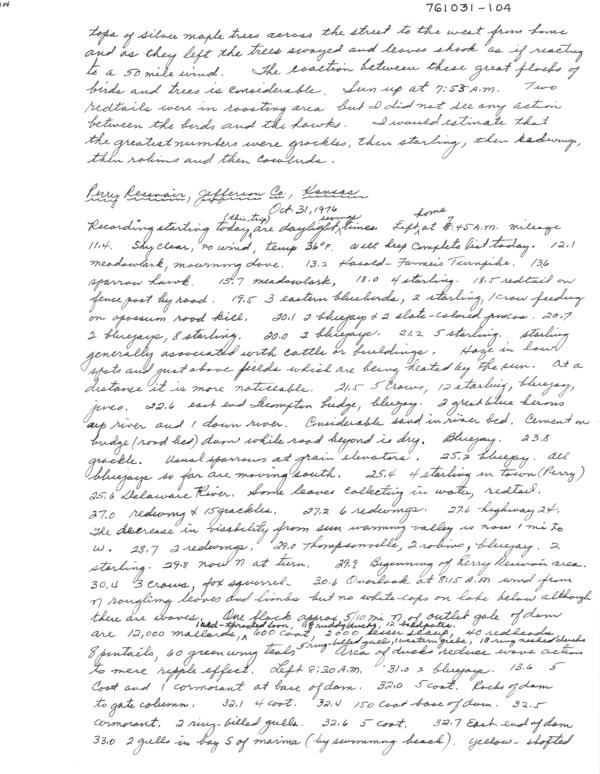 104
761031-104
tops of silver maple trees across the street to the west from home
and as they left the trees swayed and leaves shook as if reacting
to a 50 mile wind. The coaction between these great flocks of
birds and trees is considerable. Sun up at 7:53 A.M. Two
redtails were in roosting area but I did not see any action
between the birds and the hawks. I would estimate that
the greatest numbers were grackles, then starling, then redwings,
then robins and then cowbirds.
Perry Reservoir, Jefferson Co., Kansas
Oct. 31, 1976
Recording starting today (this trip) are daylight savings times. Left home at 8:45 A.M. mileage
11.4. Sky clear, no wind, temp 36°F. Will keep complete list today. 12.1
meadowlark, mourning dove. 13.2 Kasold - Farmer's Turnpike. 13.6
sparrow hawk. 15.7 meadowlark, 18.0 4 starling. 18.5 redtail on
fence post by road. 19.5 3 eastern bluebirds, 2 starling, 1 crow feeding
on opossum road kill. 20.1 2 bluejay & 2 slate-colored juncos. 20.7
2 bluejays, 8 starling. 20.0 2 bluejays. 21.2 5 starling. starling
generally associated with cattle or buildings. Haze in low
spots and just above fields which are being heated by the sun. At a
distance it is more noticeable. 21.5 5 crows, 12 starling, bluejay,
junco. 22.6 east end Lecompton bridge, bluejay. 2 great blue herons
up river and 1 down river. Considerable sand in river bed. Cement on
bridge (road bed) damp while road beyond is dry. Bluejay. 23.8
grackle. Usual sparrows at grain elevators. 25.2 bluejay. All
bluejays so far are moving south. 25.4 4 starling in town (Perry)
25.6 Delaware River. Some leaves collecting in water, redtail.
27.0 redwing & 15 grackles. 27.2 6 redwings. 27.6 highway 24.
The decrease in visability from sun warming valley is now 1 mi to
W. 28.7 2 redwings. 29.0 Thompsonville, 2 robins, bluejay. 2
starling. 29.8 now N at turn. 29.9 Beginning of Perry Reservoir area.
30.4 3 crows, fox squirrel. 30.6 Overlook at 8:15 A.M. wind from
N roughling leaves and limbs but no white-caps on lake below although
there are waves. One flock approx 5/10 mi N of outlet gate of dam
are 12,000 mallards, 1 red-throated loon, 600 coot, 18 ruddy ducks, 12 baldpates, 2000 lesser scaup, 40 redheads,
8 pintails, 60 greenwing teals, 5 ring-billed gulls, 1 western grebe, 18 ring necked ducks Area of ducks reduce wave action
to mere ripple effect. Left 8:20 A.M. 31.0 2 bluejays. 13.6 5
coot and 1 cormorant at base of dam. 32.0 5 coot. Rocks of dam
to gate column. 32.1 4 coot. 32.4 150 coot base of dam. 32.5
cormorant. 2 ring-billed gulls. 32.6 5 coot. 32.7 East end of dam
33.0 2 gulls in bay S of marina (by swimming beach). Yellow-shafted